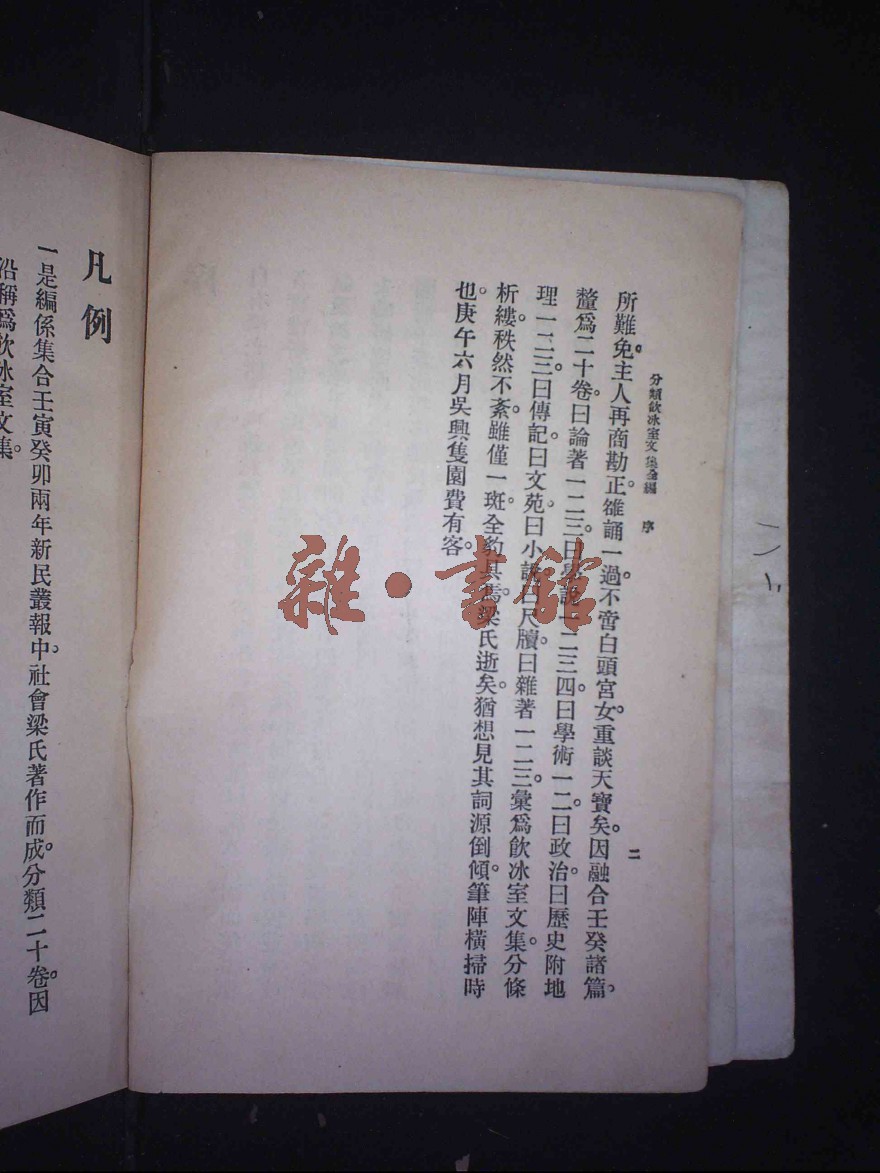 分類飲冰室文集全編　序
二
所難免。主人再商勘正。雒誦一過。不啻白頭宮女。重談天寶矣。因融合壬癸諸篇。
釐爲二十卷。曰論著一二三。曰學說一二三四。曰學術一二。曰政治。曰歷史附地
理一二三。曰傳記。曰文苑。曰小說。曰尺牘。曰雜著一二三。彙爲飲冰室文集。分條
析縷。秩然不紊。雖僅一斑。全豹具焉。梁氏逝矣。猶想見其詞源倒傾。筆陣橫掃時
也。庚午六月吳興隻園費有容。
凡例
一是編係集合壬寅癸卯兩年新民叢報中。社會梁氏著作而成。分類二十卷。因
沿稱爲飲冰室文集。
雜·書館